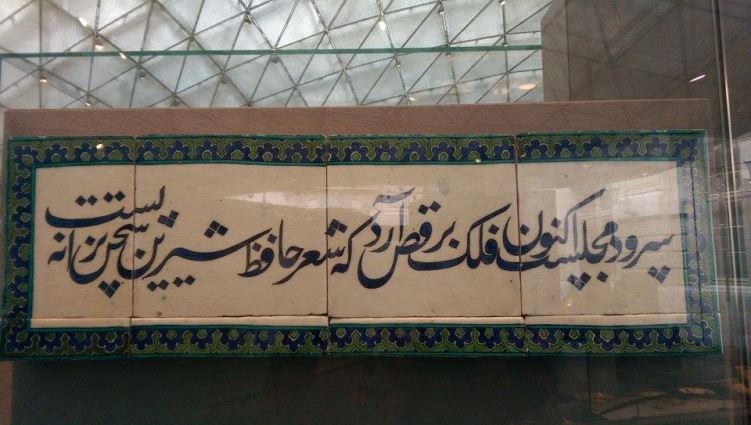 سرود مجلست اکنون فلک برقص آرد که شعر حافظ شیرین سخن ترانه تست